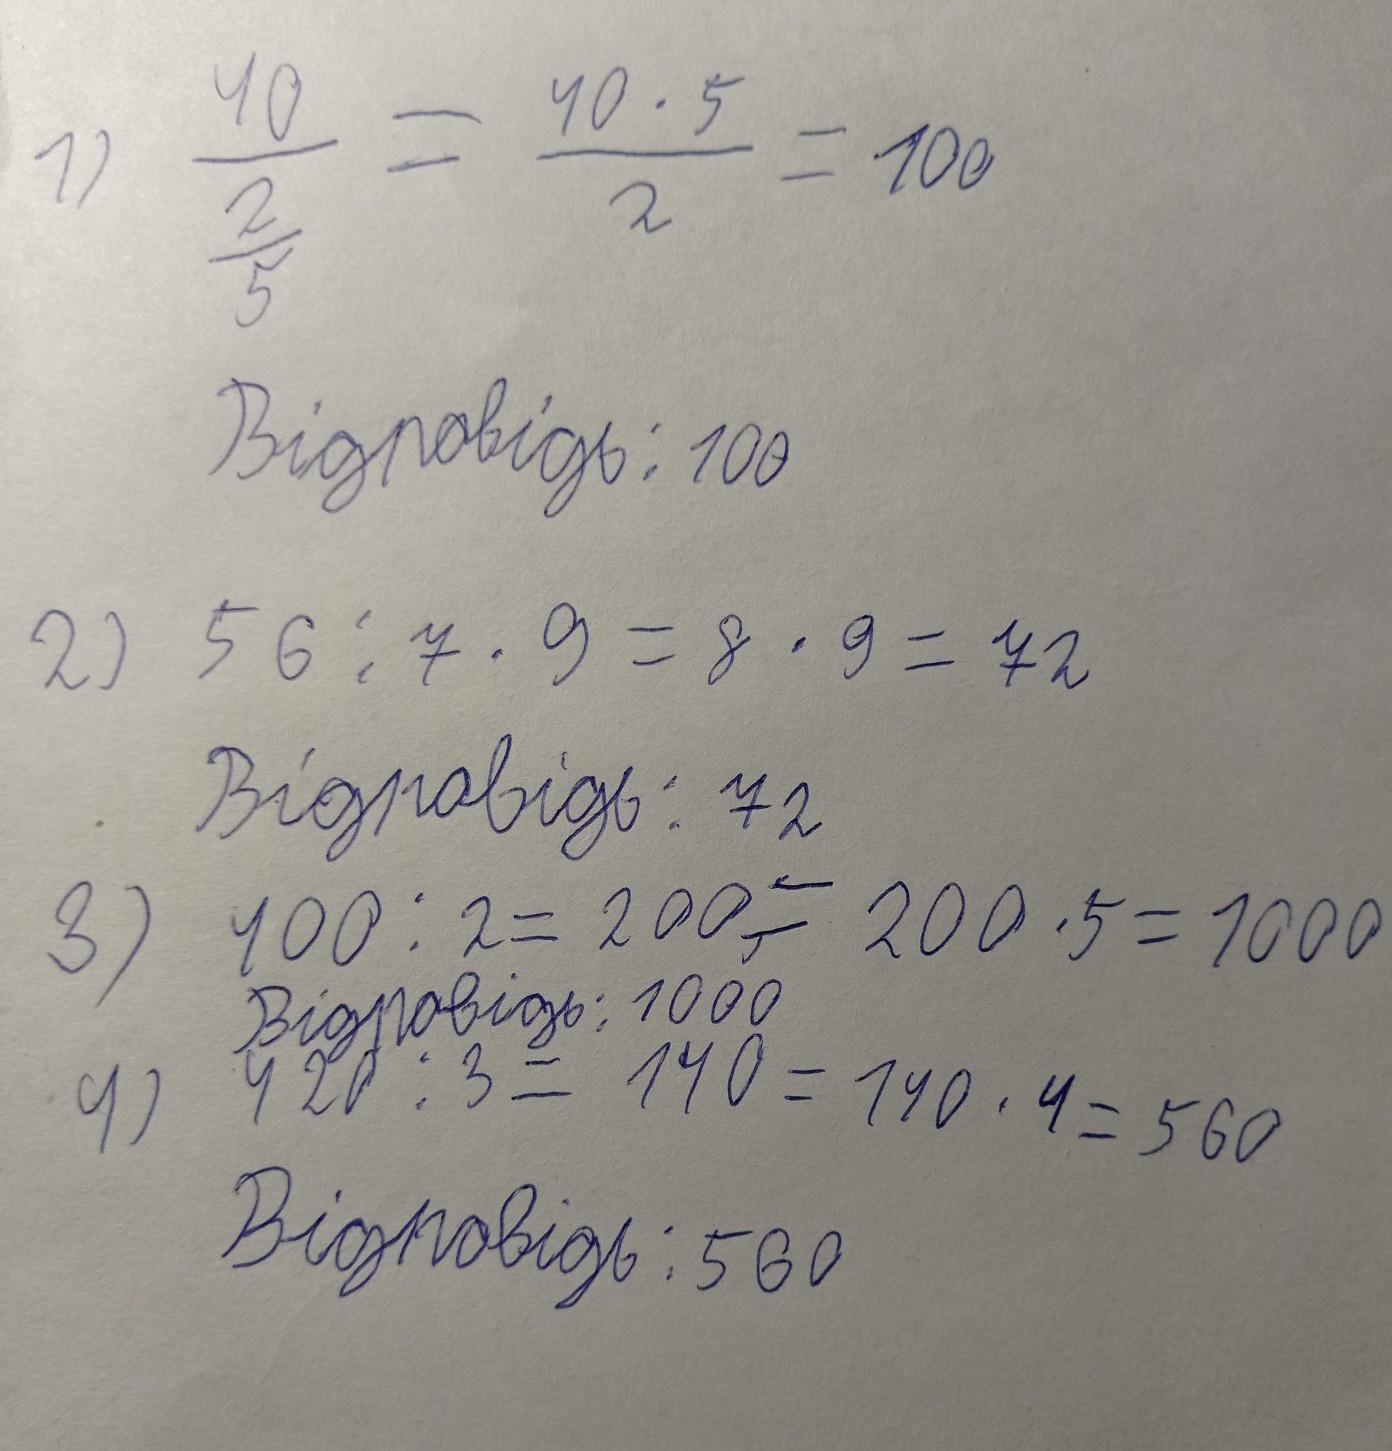 1) 40 / 2/5 = 40 · 5 / 2 = 100
Відповідь: 100
2) 56 : 7 · 9 = 8 · 9 = 72
Відповідь: 72
3) 400 : 2 = 200 = 200 · 5 = 1000
Відповідь: 1000
4) 420 : 3 = 140 = 140 · 4 = 560
Відповідь: 560